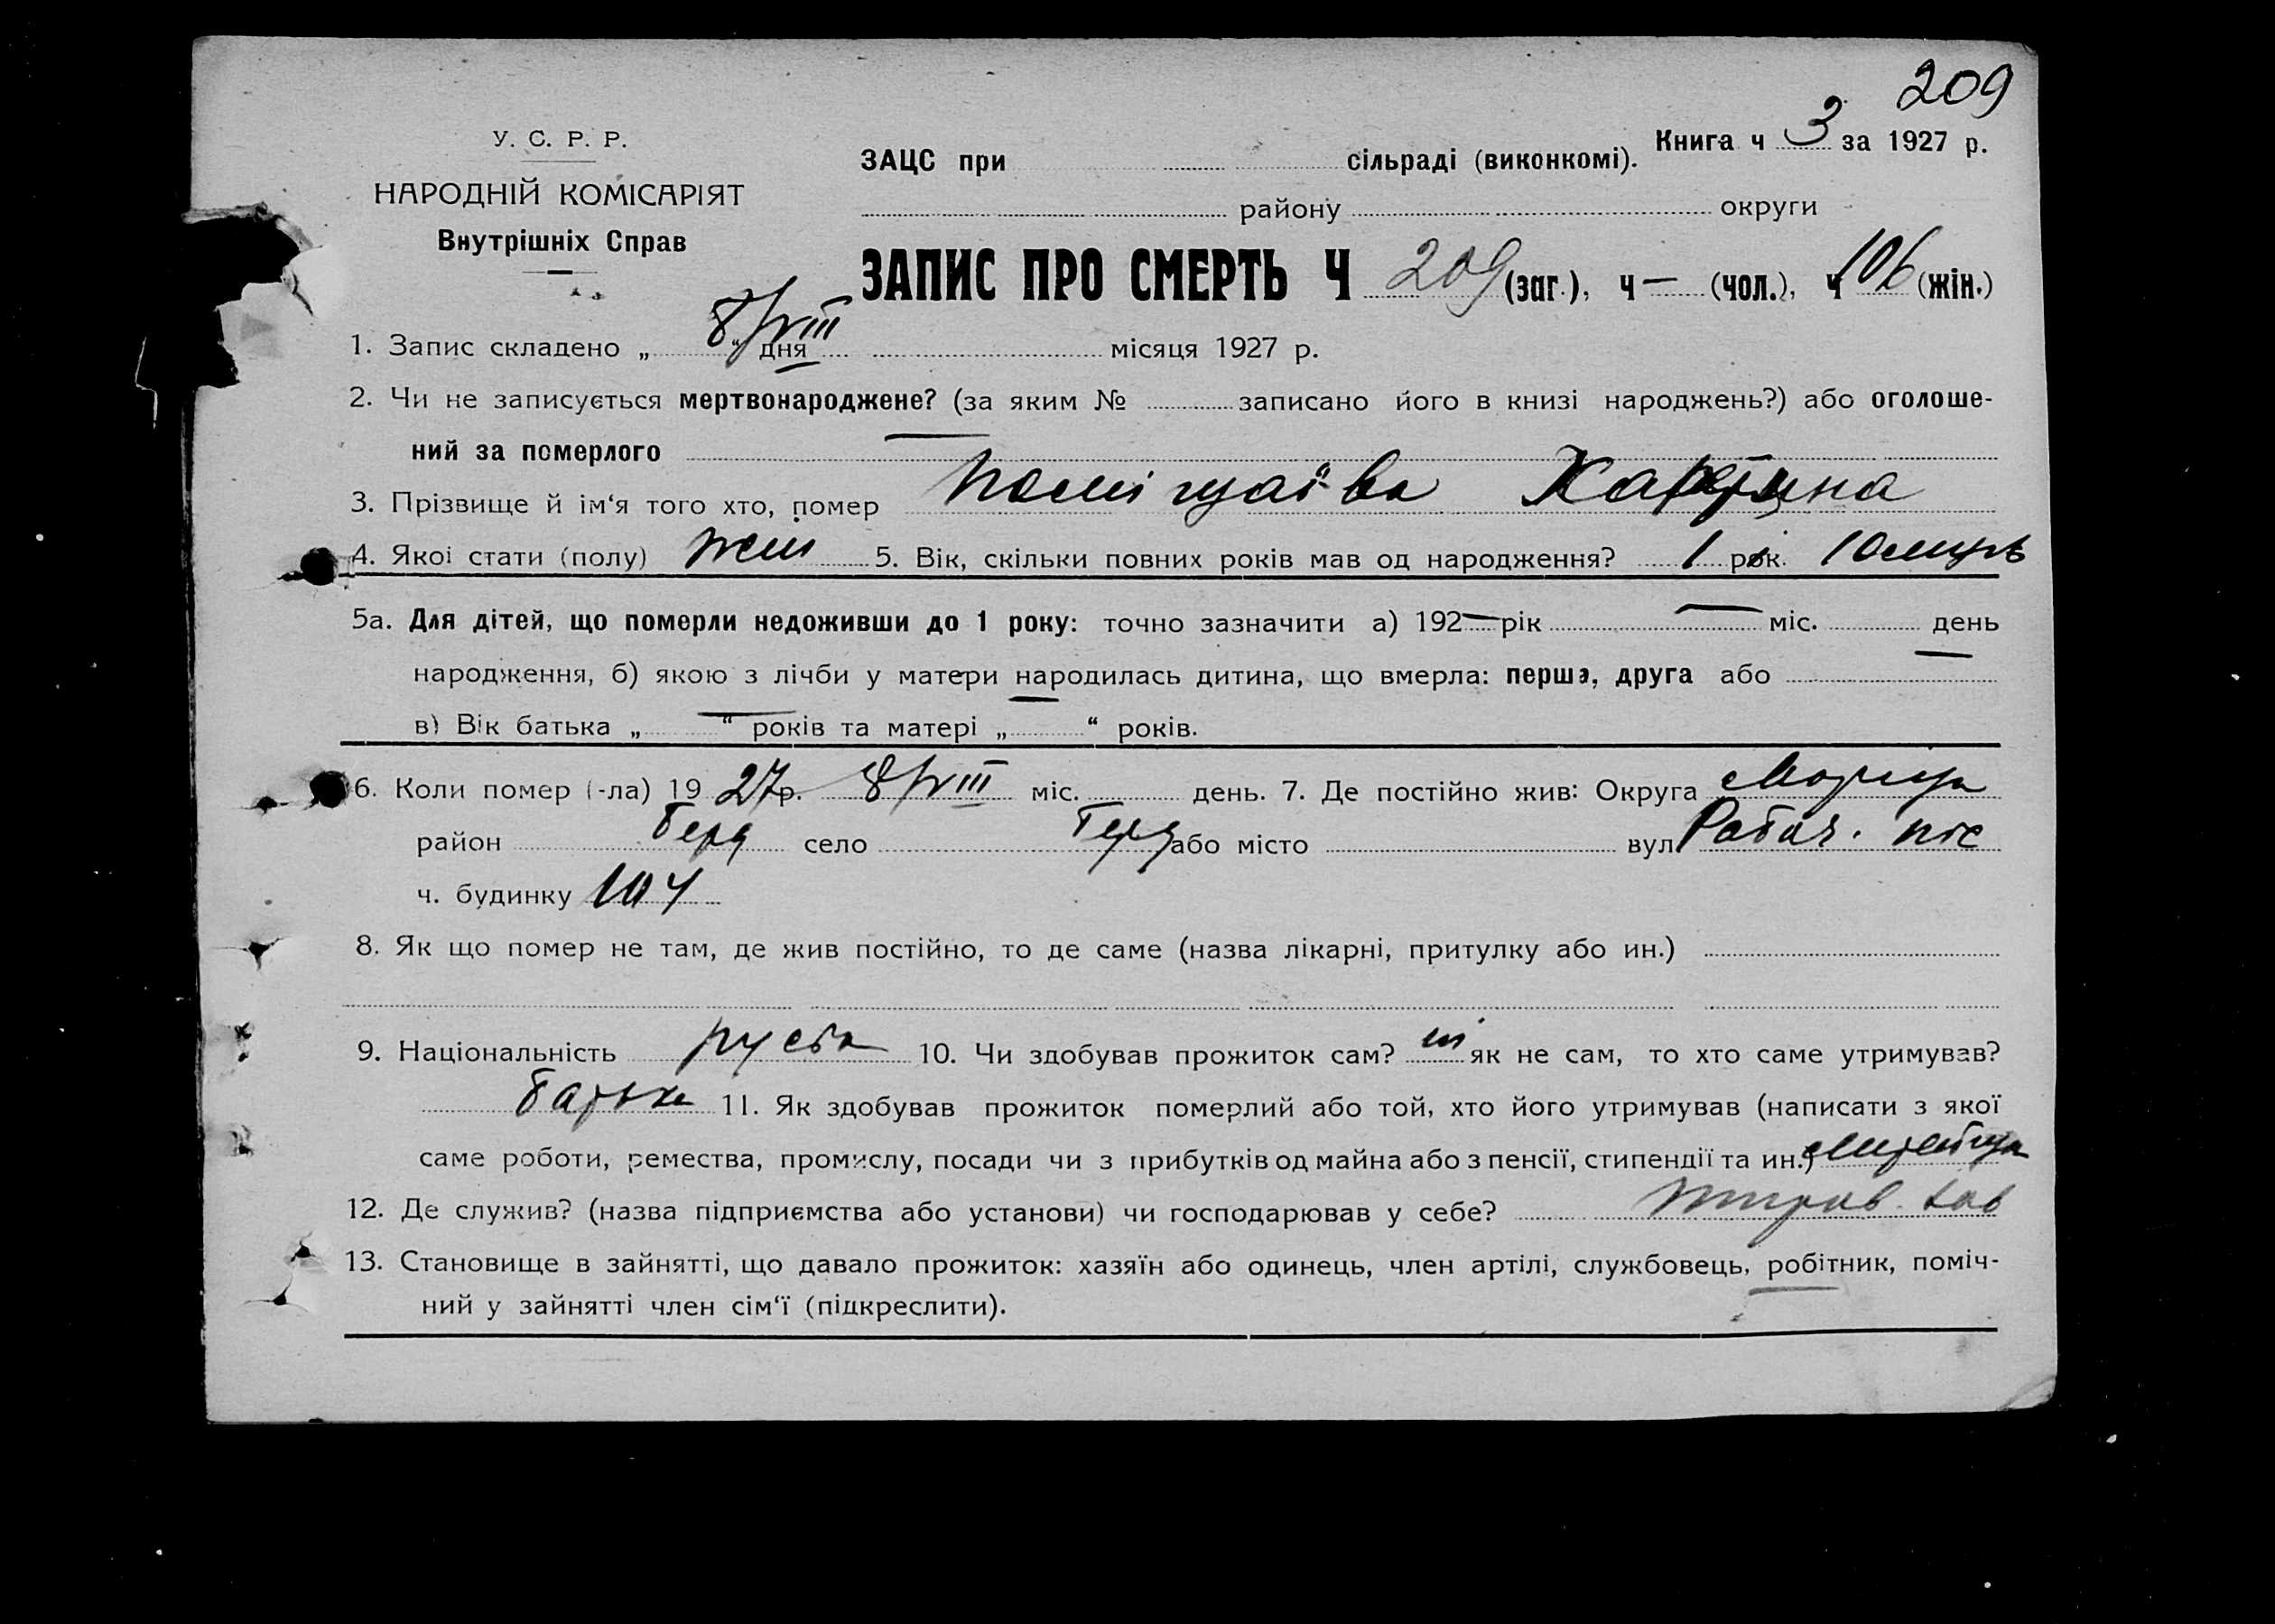 209
У. С. Р. Р.
НАРОДНІЙ КОМІСАРІЯТ
Внутрішніх Справ
Книга ч 3 за 1927 р.
ЗАЦС при сільраді (виконкомі).
району округи
ЗАПИС ПРО СМЕРТЬ Ч 209 (заг.), ч — (чол.), ч 106 (жін.)
1. Запис складено „ 8/VIII “ дня місяця 1927 р.
2. Чи не записується мертвонароджене? (за яким № записано його в книзі народжень?) або оголоше-
ний за померлого —
3. Прізвище й ім‘я того хто, помер
4. Якої стати (полу) жін 5. Вік, скільки повних років мав од народження? 1 рік. 10 місць
5а. Для дітей, що померли недоживши до 1 року: точно зазначити а) 192 — рік — міс. день
народження, б) якою з лічби у матери народилась дитина, що вмерла: перша, друга або —
в) Вік батька „ — “ років та матері „ — “ років.
6. Коли помер (-ла) 19 27 р. 8/VIII міс. день. 7. Де постійно жив: Округа
район Берд село або місто вул. Рабоч.
ч. будинку 104
8. Як що помер не там, де жив постійно, то де саме (назва лікарні, притулку або ин.)
9. Національність руська 10. Чи здобував прожиток сам? ні як не сам, то хто саме утримував?
батько 11. Як здобував прожиток померлий або той, хто його утримував (написати з якої
саме роботи, ремества, промислу, посади чи з прибутків од майна або з пенсії, стипендії та ин.)
12. Де служив? (назва підприємства або установи) чи господарював у себе?
13. Становище в зайнятті, що давало прожиток: хазяїн або одинець, член артілі, службовець, робітник, поміч-
ний у зайнятті член сім‘ї (підкреслити).